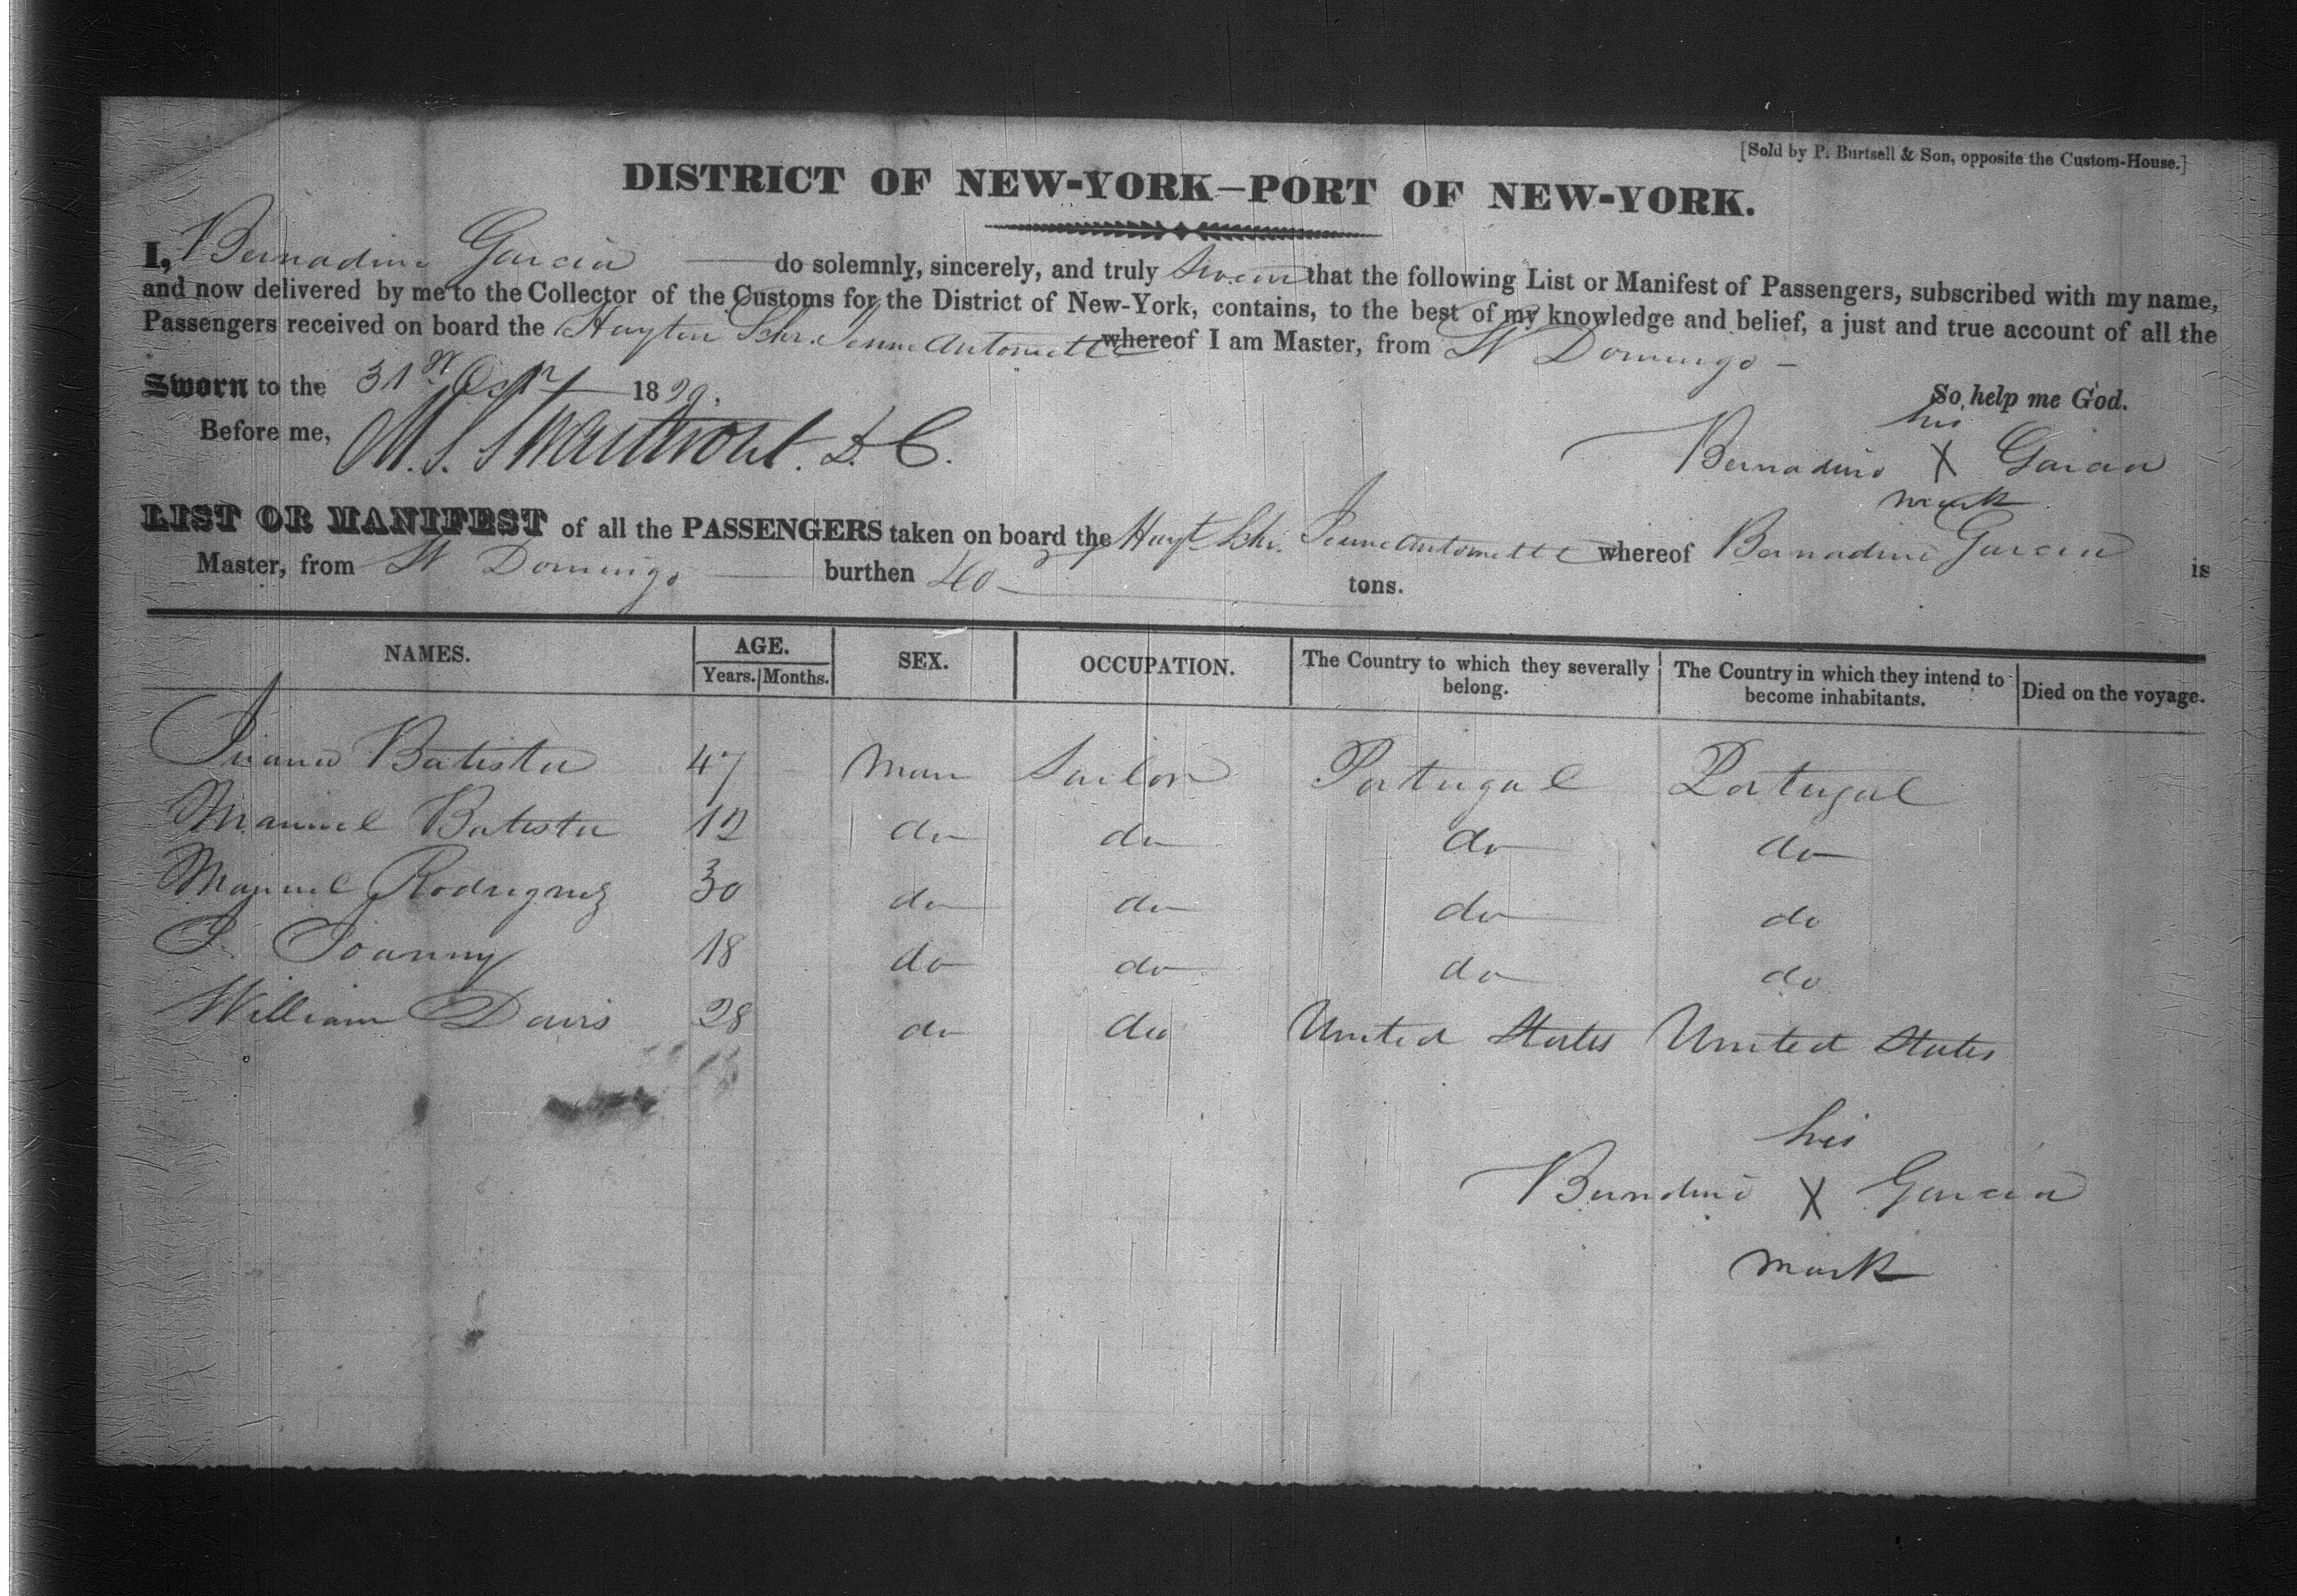 [Sold by P. Burtsell & Son, opposite the Custom-House.]
DISTRICT OF NEW-YORK—PORT OF NEW-YORK.
I, Bernadino Garcia do solemnly, sincerely, and truly Swear that the following List or Manifest of Passengers, subscribed with my name,
and now delivered by me to the Collector of the Customs for the District of New-York, contains, to the best of my knowledge and belief, a just and true account of all the
Passengers received on board the Haytien Schr. Jeune Antoinette whereof I am Master, from St Domingo
Sworn to the 31st 1829.
So help me God.
Before me, M. S. Swartwout. D. C.
his
Bernadino X Garcia
mark
LIST OR MANIFEST of all the PASSENGERS taken on board the Hayt. Schr. Jeune Antoinette whereof Bernadino Garcia is
Master, from St Domingo burthen 40 tons.
NAMES. AGE. SEX. OCCUPATION. The Country to which they severally belong. The Country in which they intend to become inhabitants. Died on the voyage.
Years. Months.
Batista 47 Man Sailor Portugal Portugal
Manuel Batista 12 do do do do
Manuel Rodriguez 30 do do do do
J. Joanny 18 do do do do
William Davis 28 do do United States United States
his
Berndino X Garcia
mark